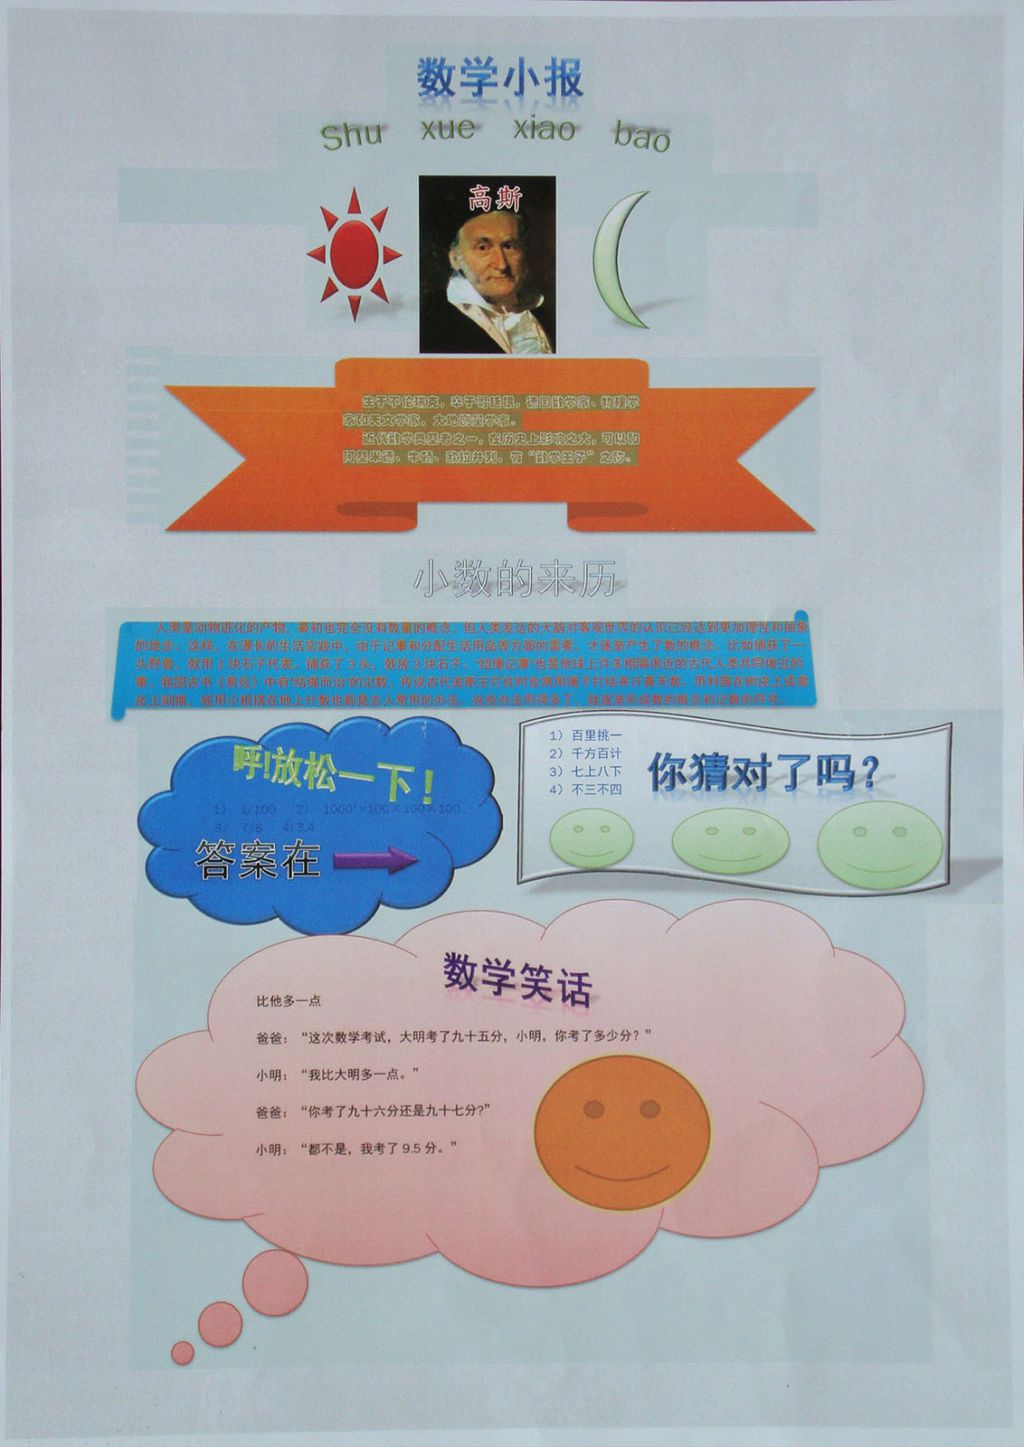 数学小报
Shu xue xiao bao
高斯
生于不伦瑞克，卒于哥廷根，德国数学家、物理学
家和天文学家，大地测量学家。
近代数学奠基者之一，在历史上影响之大，可以和
阿基米德、牛顿、欧拉并列，有“数学王子”之称。
小数的来历
人类是动物进化的产物，最初也完全没有数量的概念。但人类发达的大脑对客观世界的认识已经达到更加理性和抽象
的地步。这样，在漫长的生活实践中，由于记事和分配生活用品等方面的需要，才逐渐产生了数的概念。比如捕获了一
头野兽，就用1块石子代表。捕获了3头，就放3块石子。“结绳记事”也是地球上许多相隔很近的古代人类共同做过的
事。我国古书《易经》中有“结绳而治”的记载。传说古代波斯王打仗时也常用绳子打结来计算天数。用利器在树皮上或兽
皮上刻痕，或用小棍摆在地上计数也都是古人常用的办法。这些办法用得多了，就逐渐形成数的概念和记数的符号。
呼!放松一下！
1） 1/100 2） 1000²=100×100×100
3） 7/8 4) 3.4
答案在
1）百里挑一
2）千方百计
3）七上八下
4）不三不四
你猜对了吗？
数学笑话
比他多一点
爸爸：“这次数学考试，大明考了九十五分，小明，你考了多少分？”
小明：“我比大明多一点。”
爸爸：“你考了九十六分还是九十七分?”
小明：“都不是，我考了 9.5 分。”